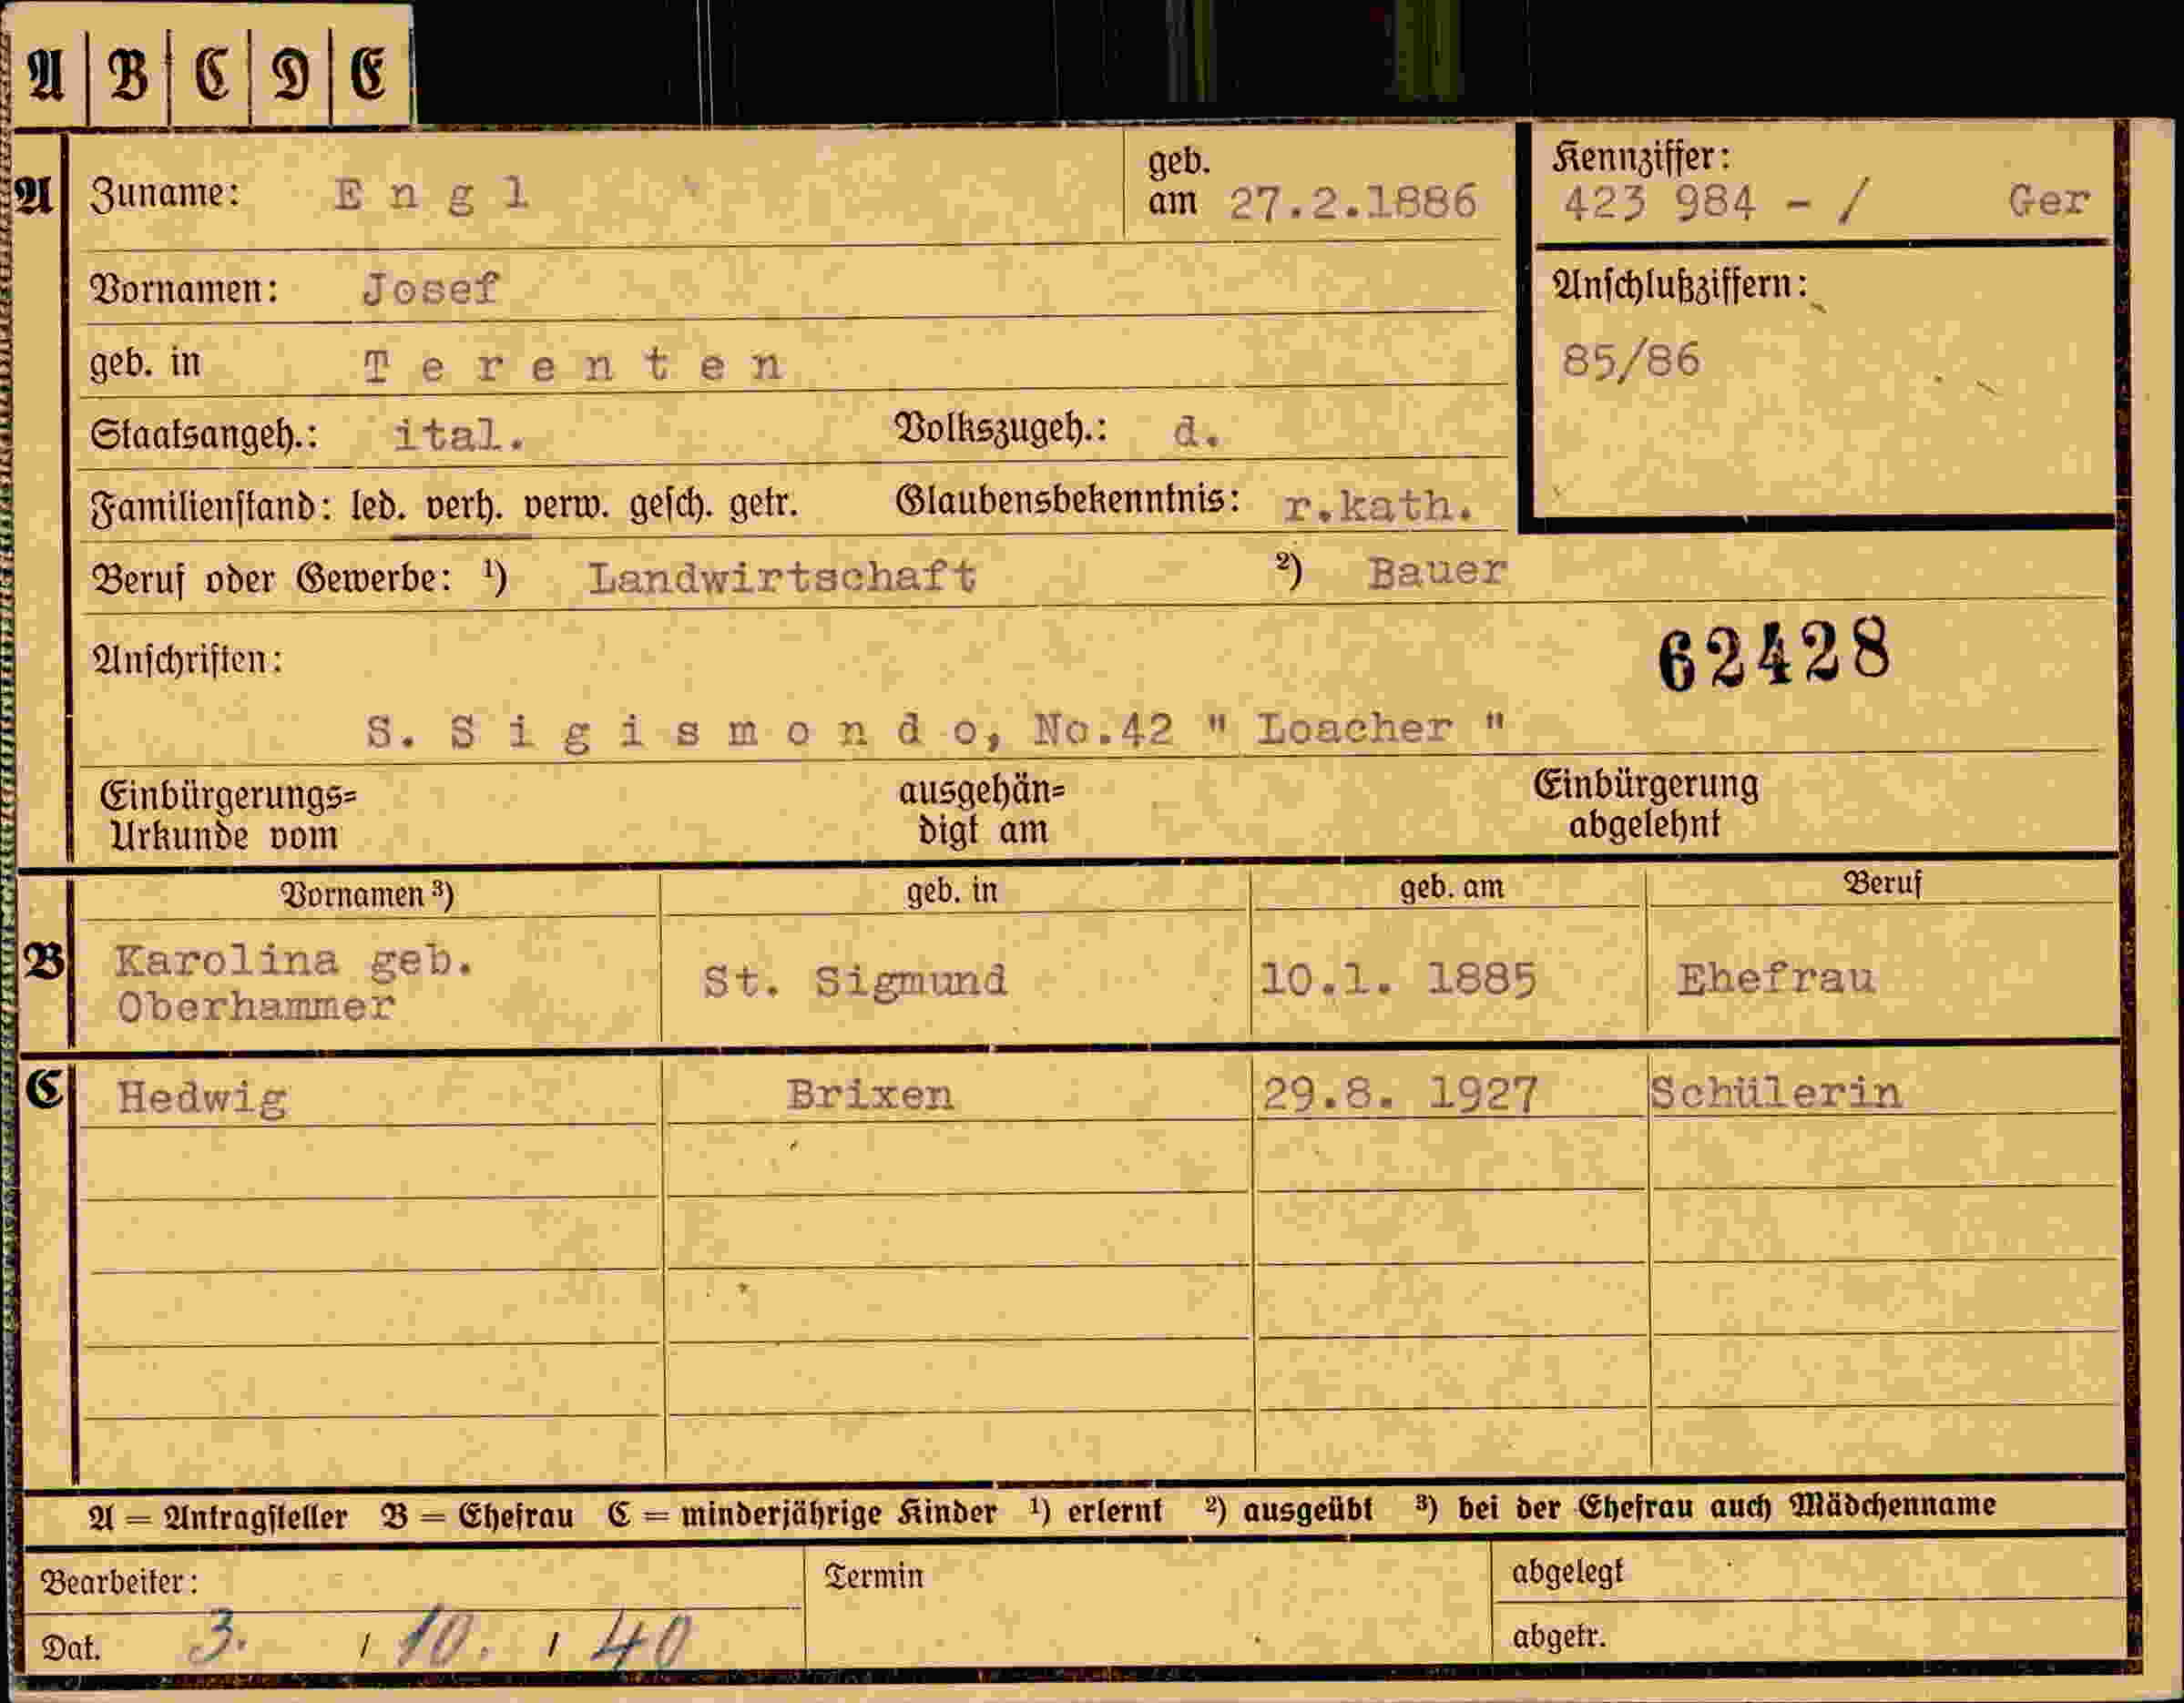 A B C D E
A Zuname: Engl geb. am 27.2.1886 Kennziffer: 423 984 - / Ger
Vornamen: Josef Anschlußziffern:
geb. in Terenten 85/86
Staatsangeh.: ital. Volkszugeh.: d.
Familienstand: led. verh. verw. gesch. getr. Glaubensbekenntnis: r.kath.
Beruf oder Gewerbe: ¹) Landwirtschaft ²) Bauer
Anschriften: 62428
S. Sigismondo, No.42 " Loacher "
Einbürgerungs= ausgehän= Einbürgerung
Urkunde vom digt am abgelehnt
Vornamen ³) geb. in geb. am Beruf
B Karolina geb. St. Sigmund 10.1. 1885 Ehefrau
Oberhammer
C Hedwig Brixen 29.8. 1927 Schülerin
A = Antragsteller B = Ehefrau C = minderjährige Kinder ¹) erlernt ²) ausgeübt ³) bei der Ehefrau auch Mädchenname
Bearbeiter: Termin abgelegt
Dat. 3. / 10. / 40 abgetr.